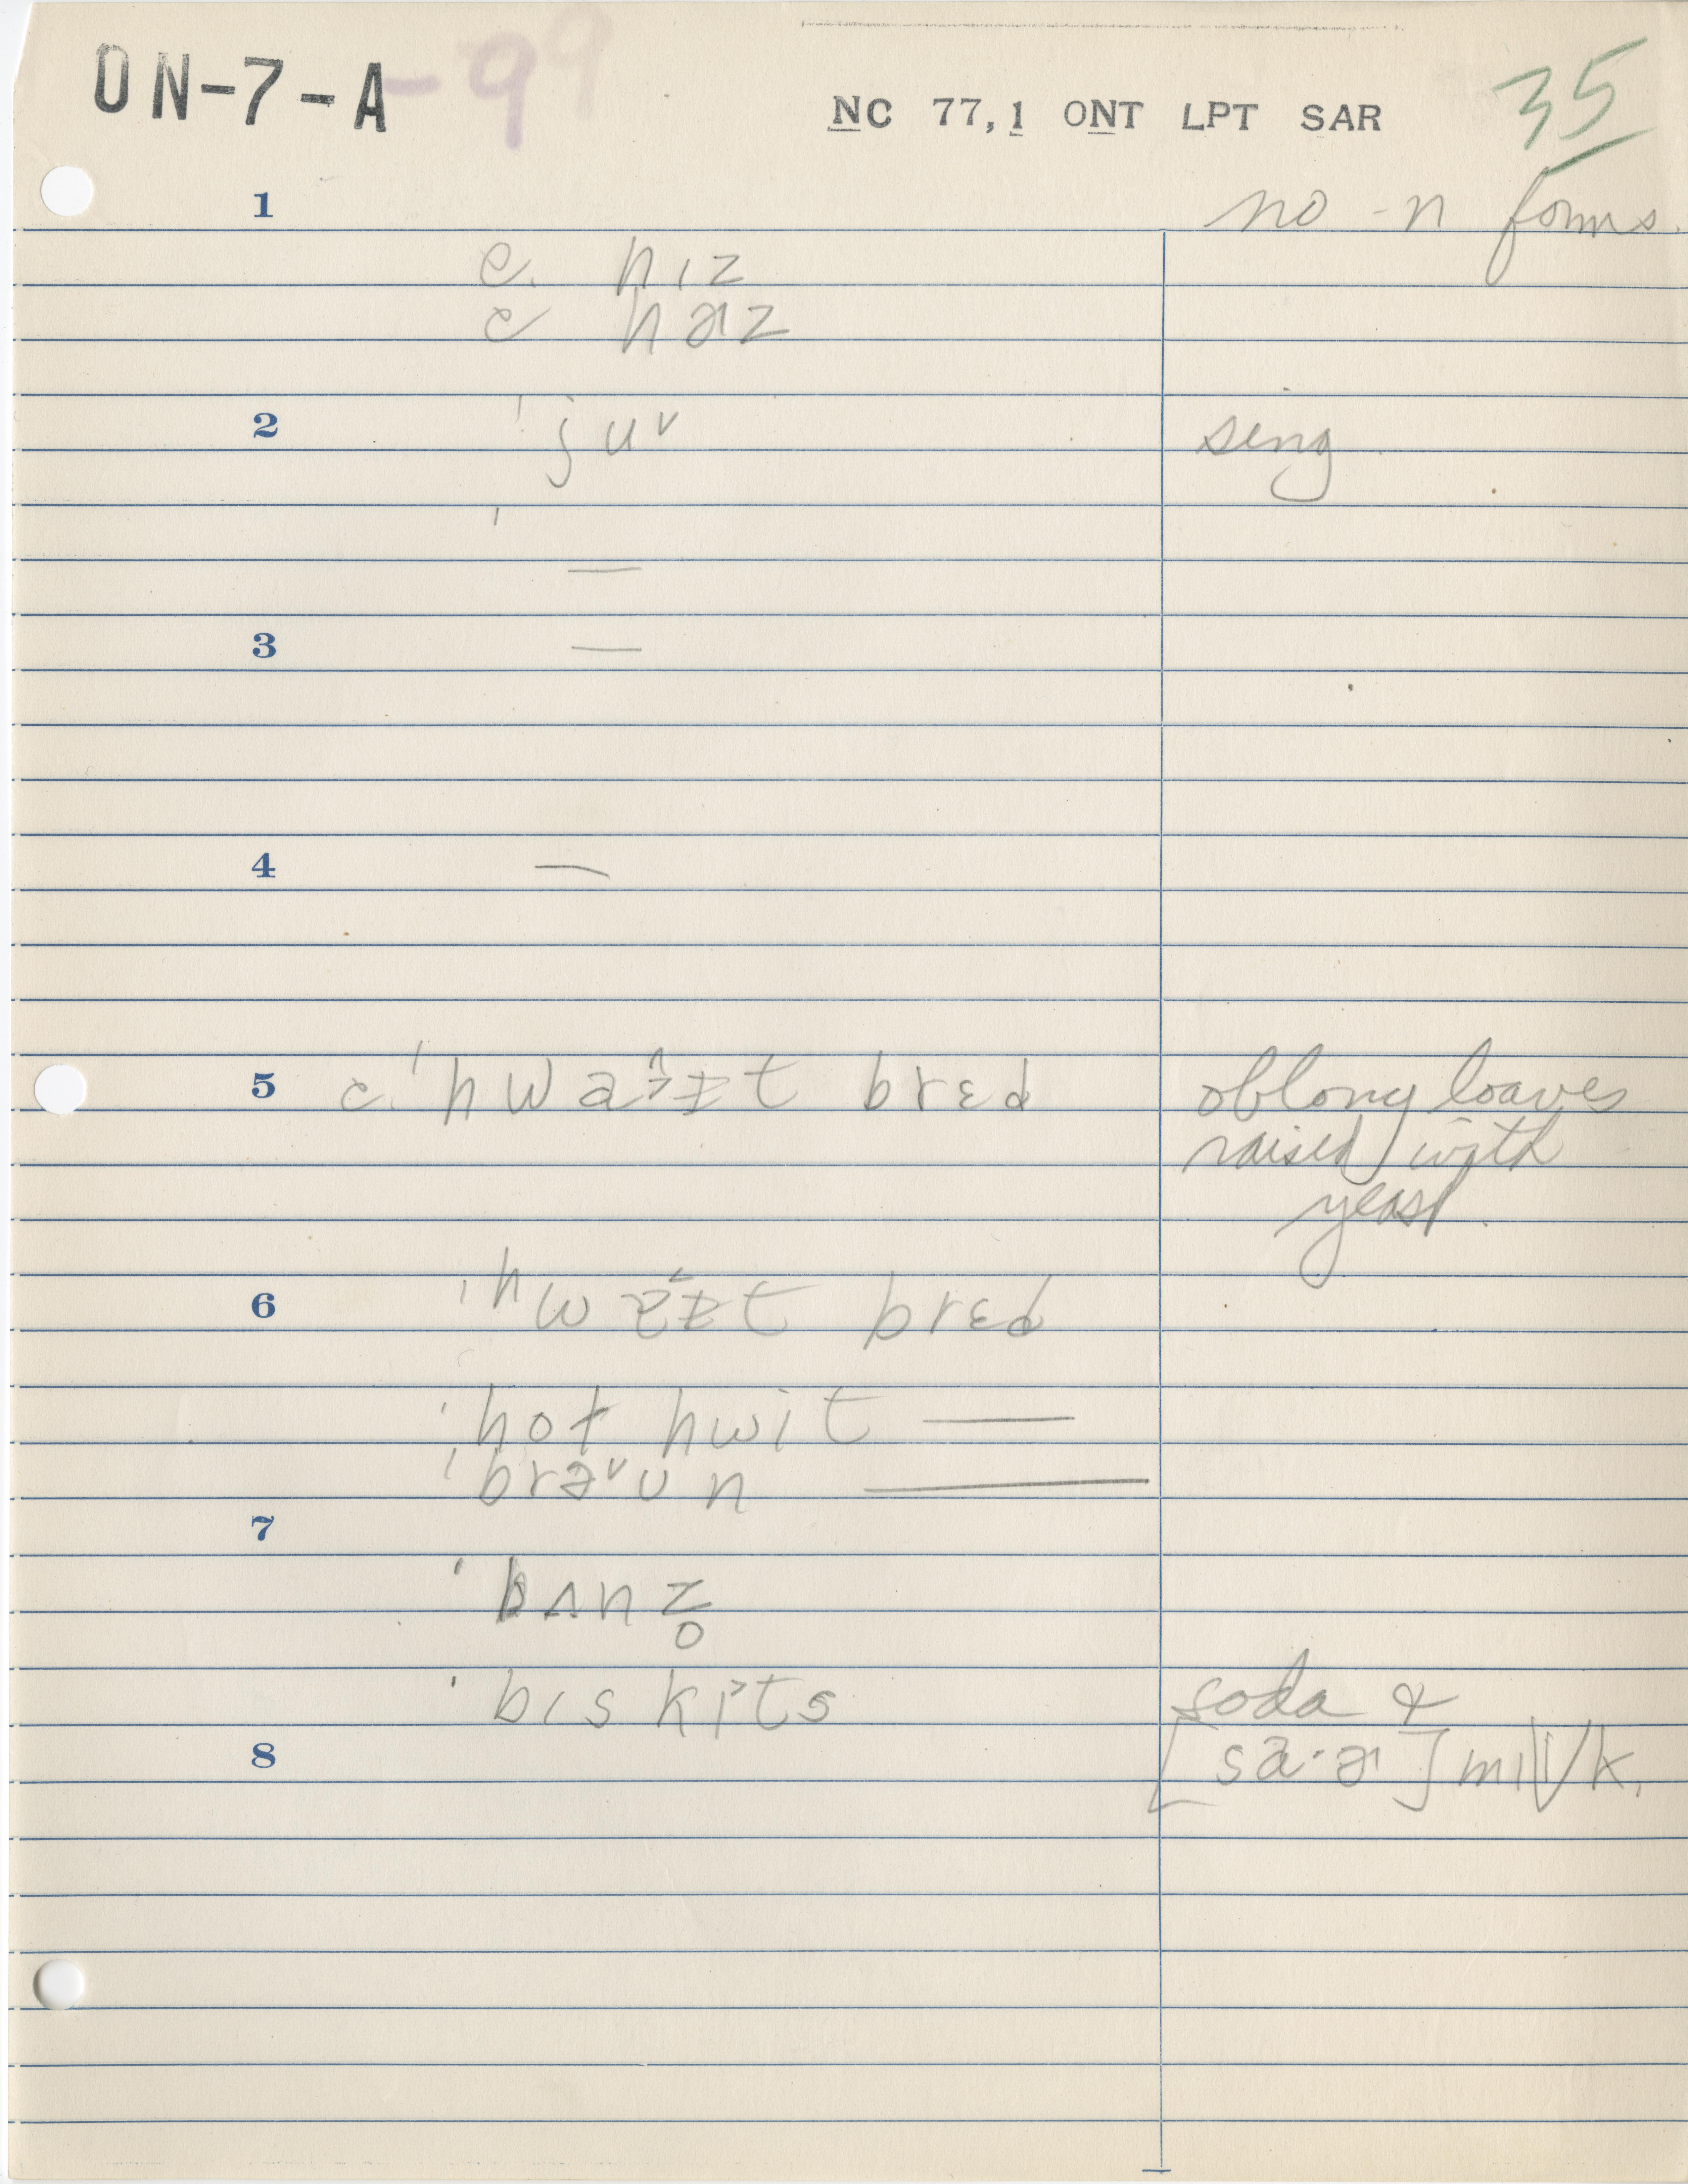 ON-7-A-99
NC 77,1 ONT LPT SAR
35
1 no -n forms.
c. hɪz
c hɚz
2 ˈjuᵛ sing
3 —
4 —
5 c. ˈhwaɪt brɛd oblong loaves
raised with
yeast.
6 ˈhwaɪt brɛd
ˈhot hwit —
ˈbraʊn —
7
ˈbʌnz̥
ˈbɪskɪts soda &
8 milk,